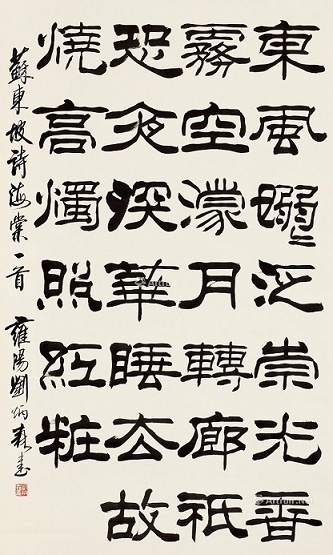 東風嫋〻泛崇光香
霧空濛月轉廊祇
恐夜深華睡去故
燒高燭照紅粧
蘇東坡詩海棠一首 雍陽劉炳森書